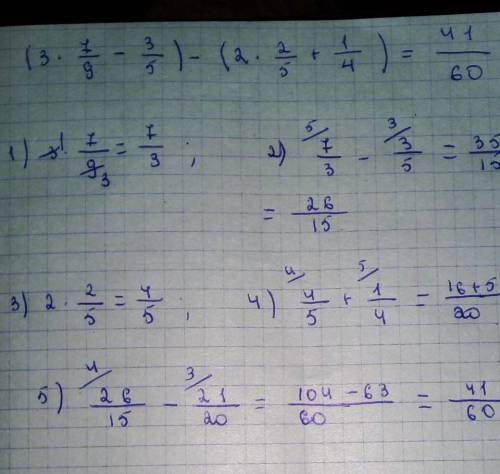 (3 · 7/9 − 3/5) − (2 · 2/5 + 1/4) = 41/60
1) 3 1 · 7/9 3 = 7/3 ; 2) 5/ 7/3 − 3/ 3/5 = 35/15
= 26/15
3) 2 · 2/5 = 4/5 ; 4) 4/ 4/5 + 5/ 1/4 = 16+5/20
5) 4/ 26/15 − 3/ 21/20 = 104−63/60 = 41/60